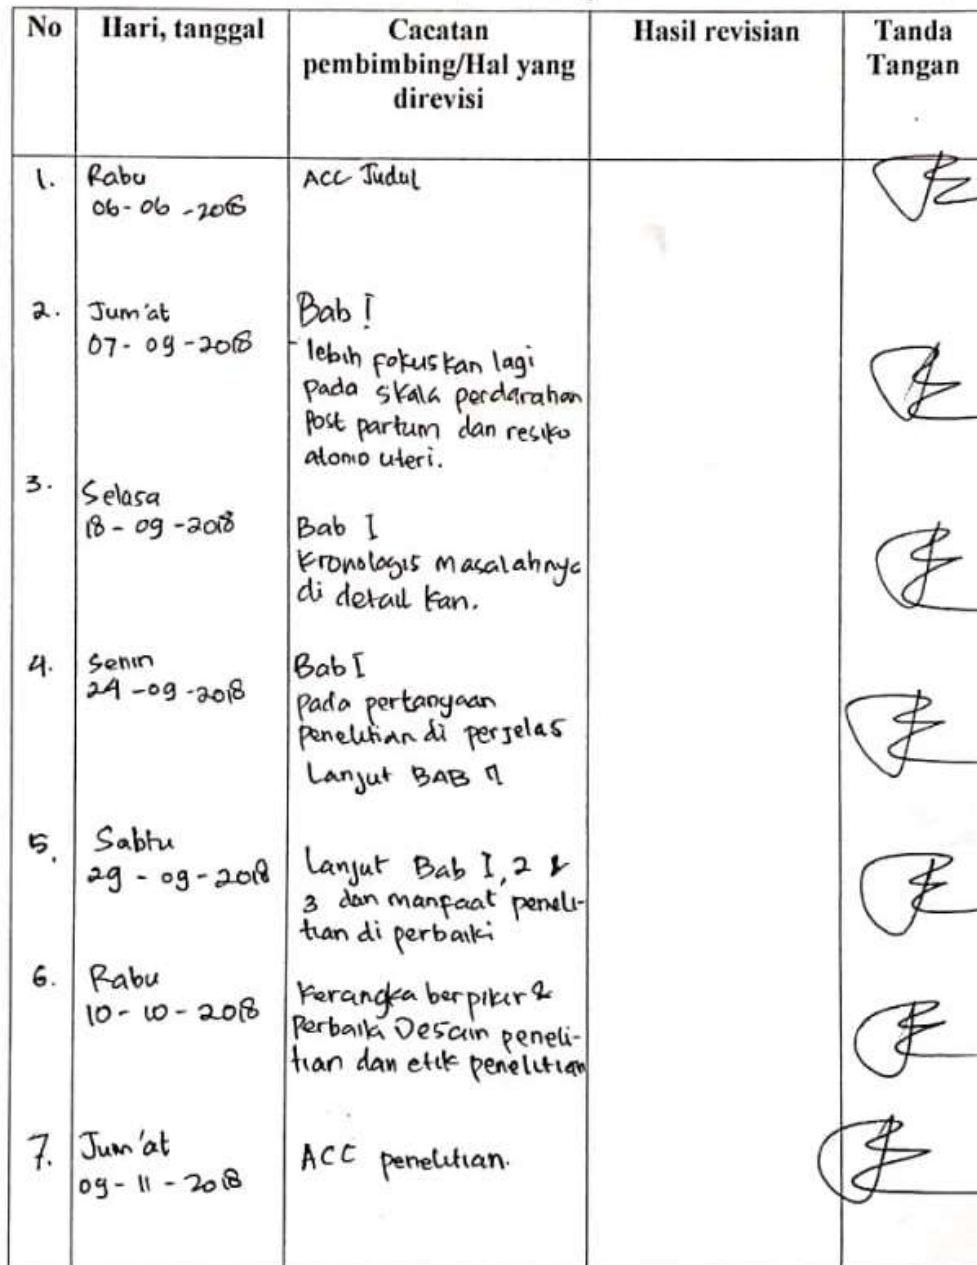 No Hari, tanggal Cacatan Hasil revisian Tanda
pembimbing/Hal yang Tangan
direvisi
1. Rabu ACC Judul
06-06-2018
2. Jum'at Bab I
07-09-2018
- lebih fokuskan lagi
pada skala perdarahan
Post partum dan resiko
atonio uteri.
3. Selasa
18-09-2018 Bab I
Kronologis masalahnya
di detail kan.
4. Senin Bab I
24-09-2018 pada pertanyaan
penelitian di perjelas
Lanjut BAB
5. Sabtu
29-09-2018 Lanjut Bab I, 2 &
3 dan manfaat peneli-
tian di perbaiki
6. Rabu
10-10-2018 Kerangka berpikir &
Perbaiki Desain peneli-
tian dan etik penelitian
7. Jum'at ACC penelitian.
09-11-2018